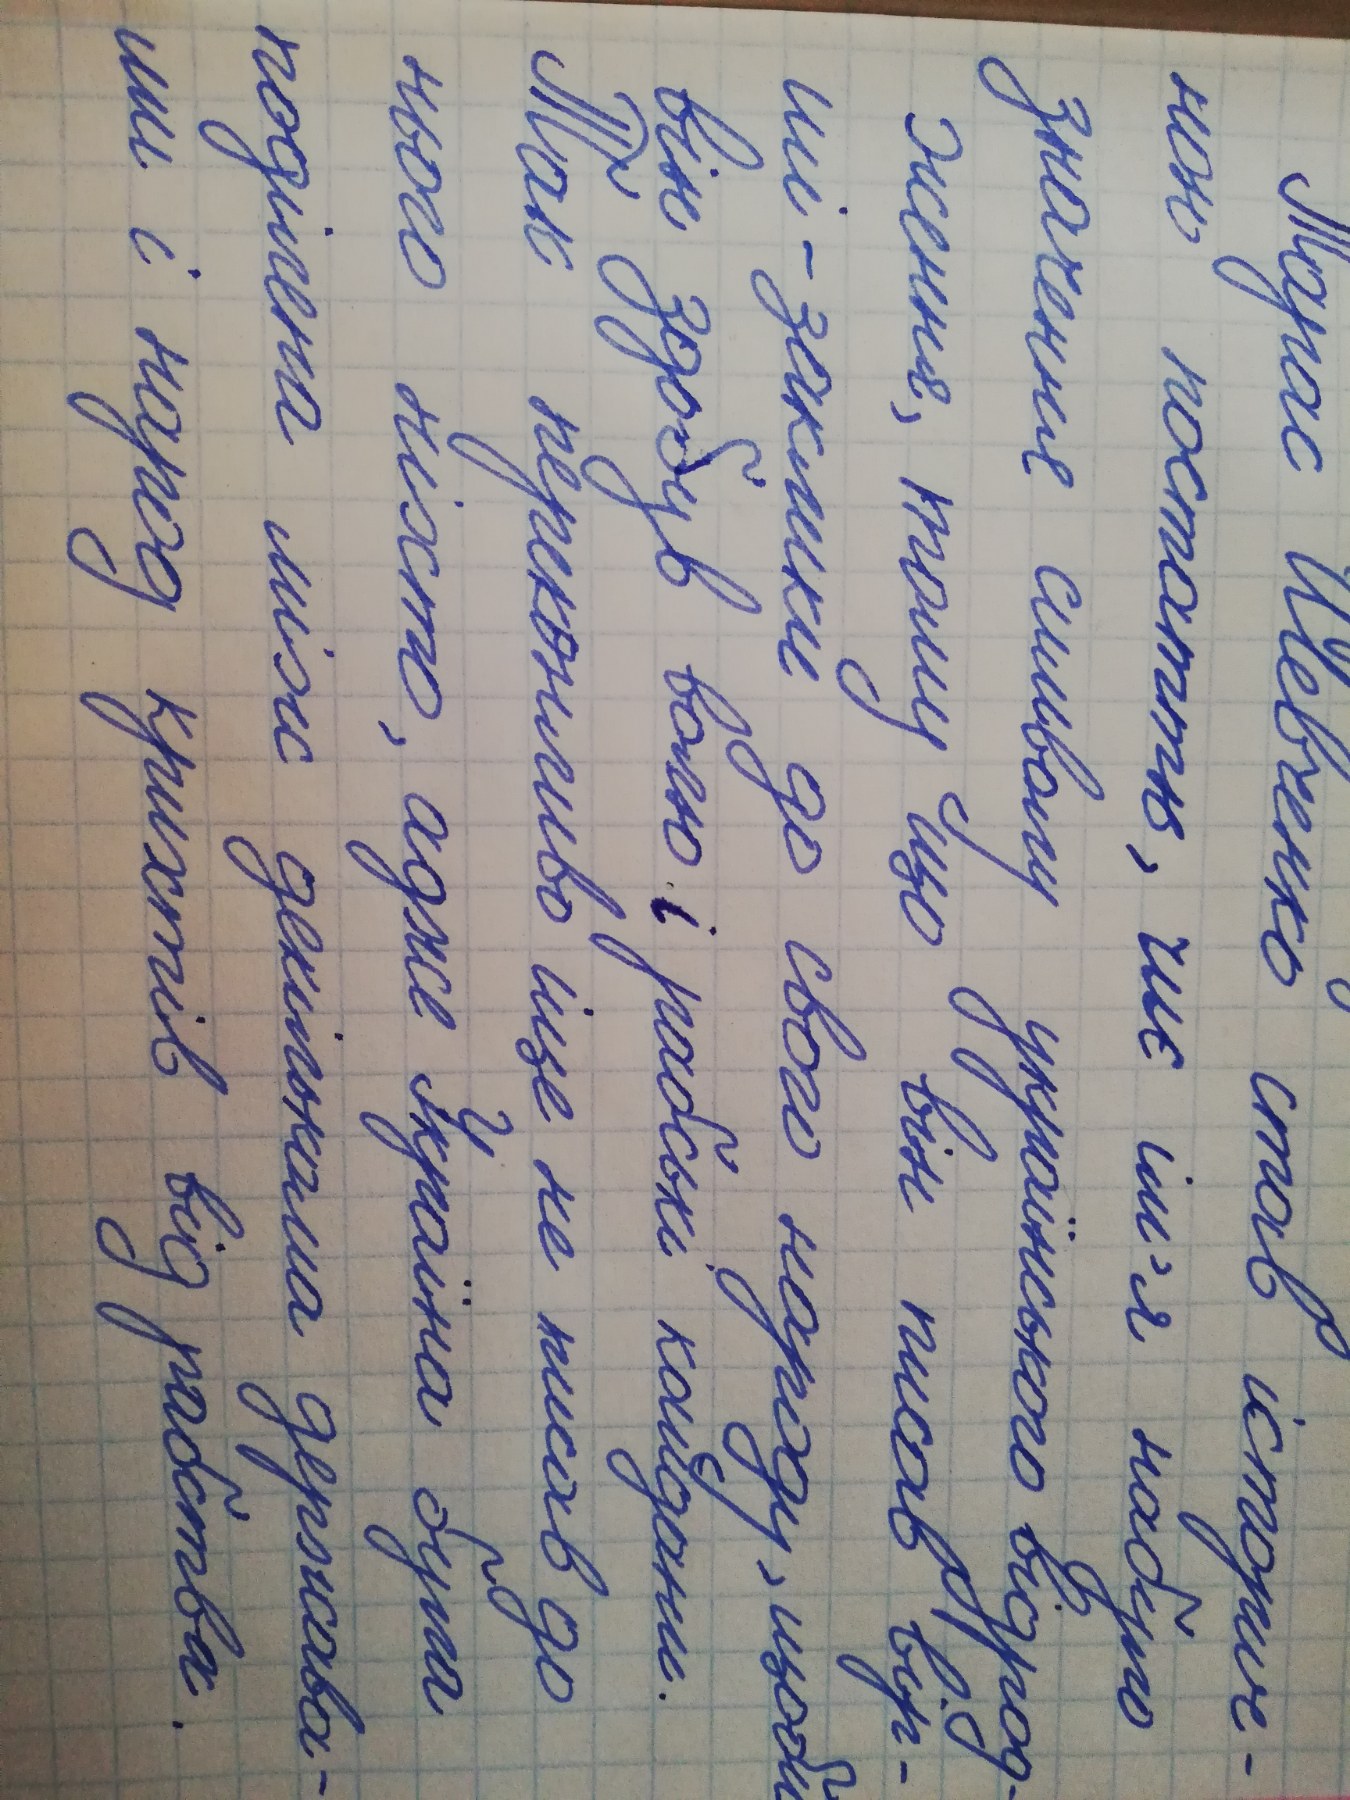 Тарас Шевченко став історич-
ною постаттю, чиє ім'я набуло
значення символу українського відрод-
ження, тому що він писав вір-
ші - заклики до свого народу, щоби
він здобув волю і розбив кайдани.
Так переконливо іще не писав до
нього ніхто, адже Україна була
поділена між декількома держава-
ми і народ крихтів від рабства.